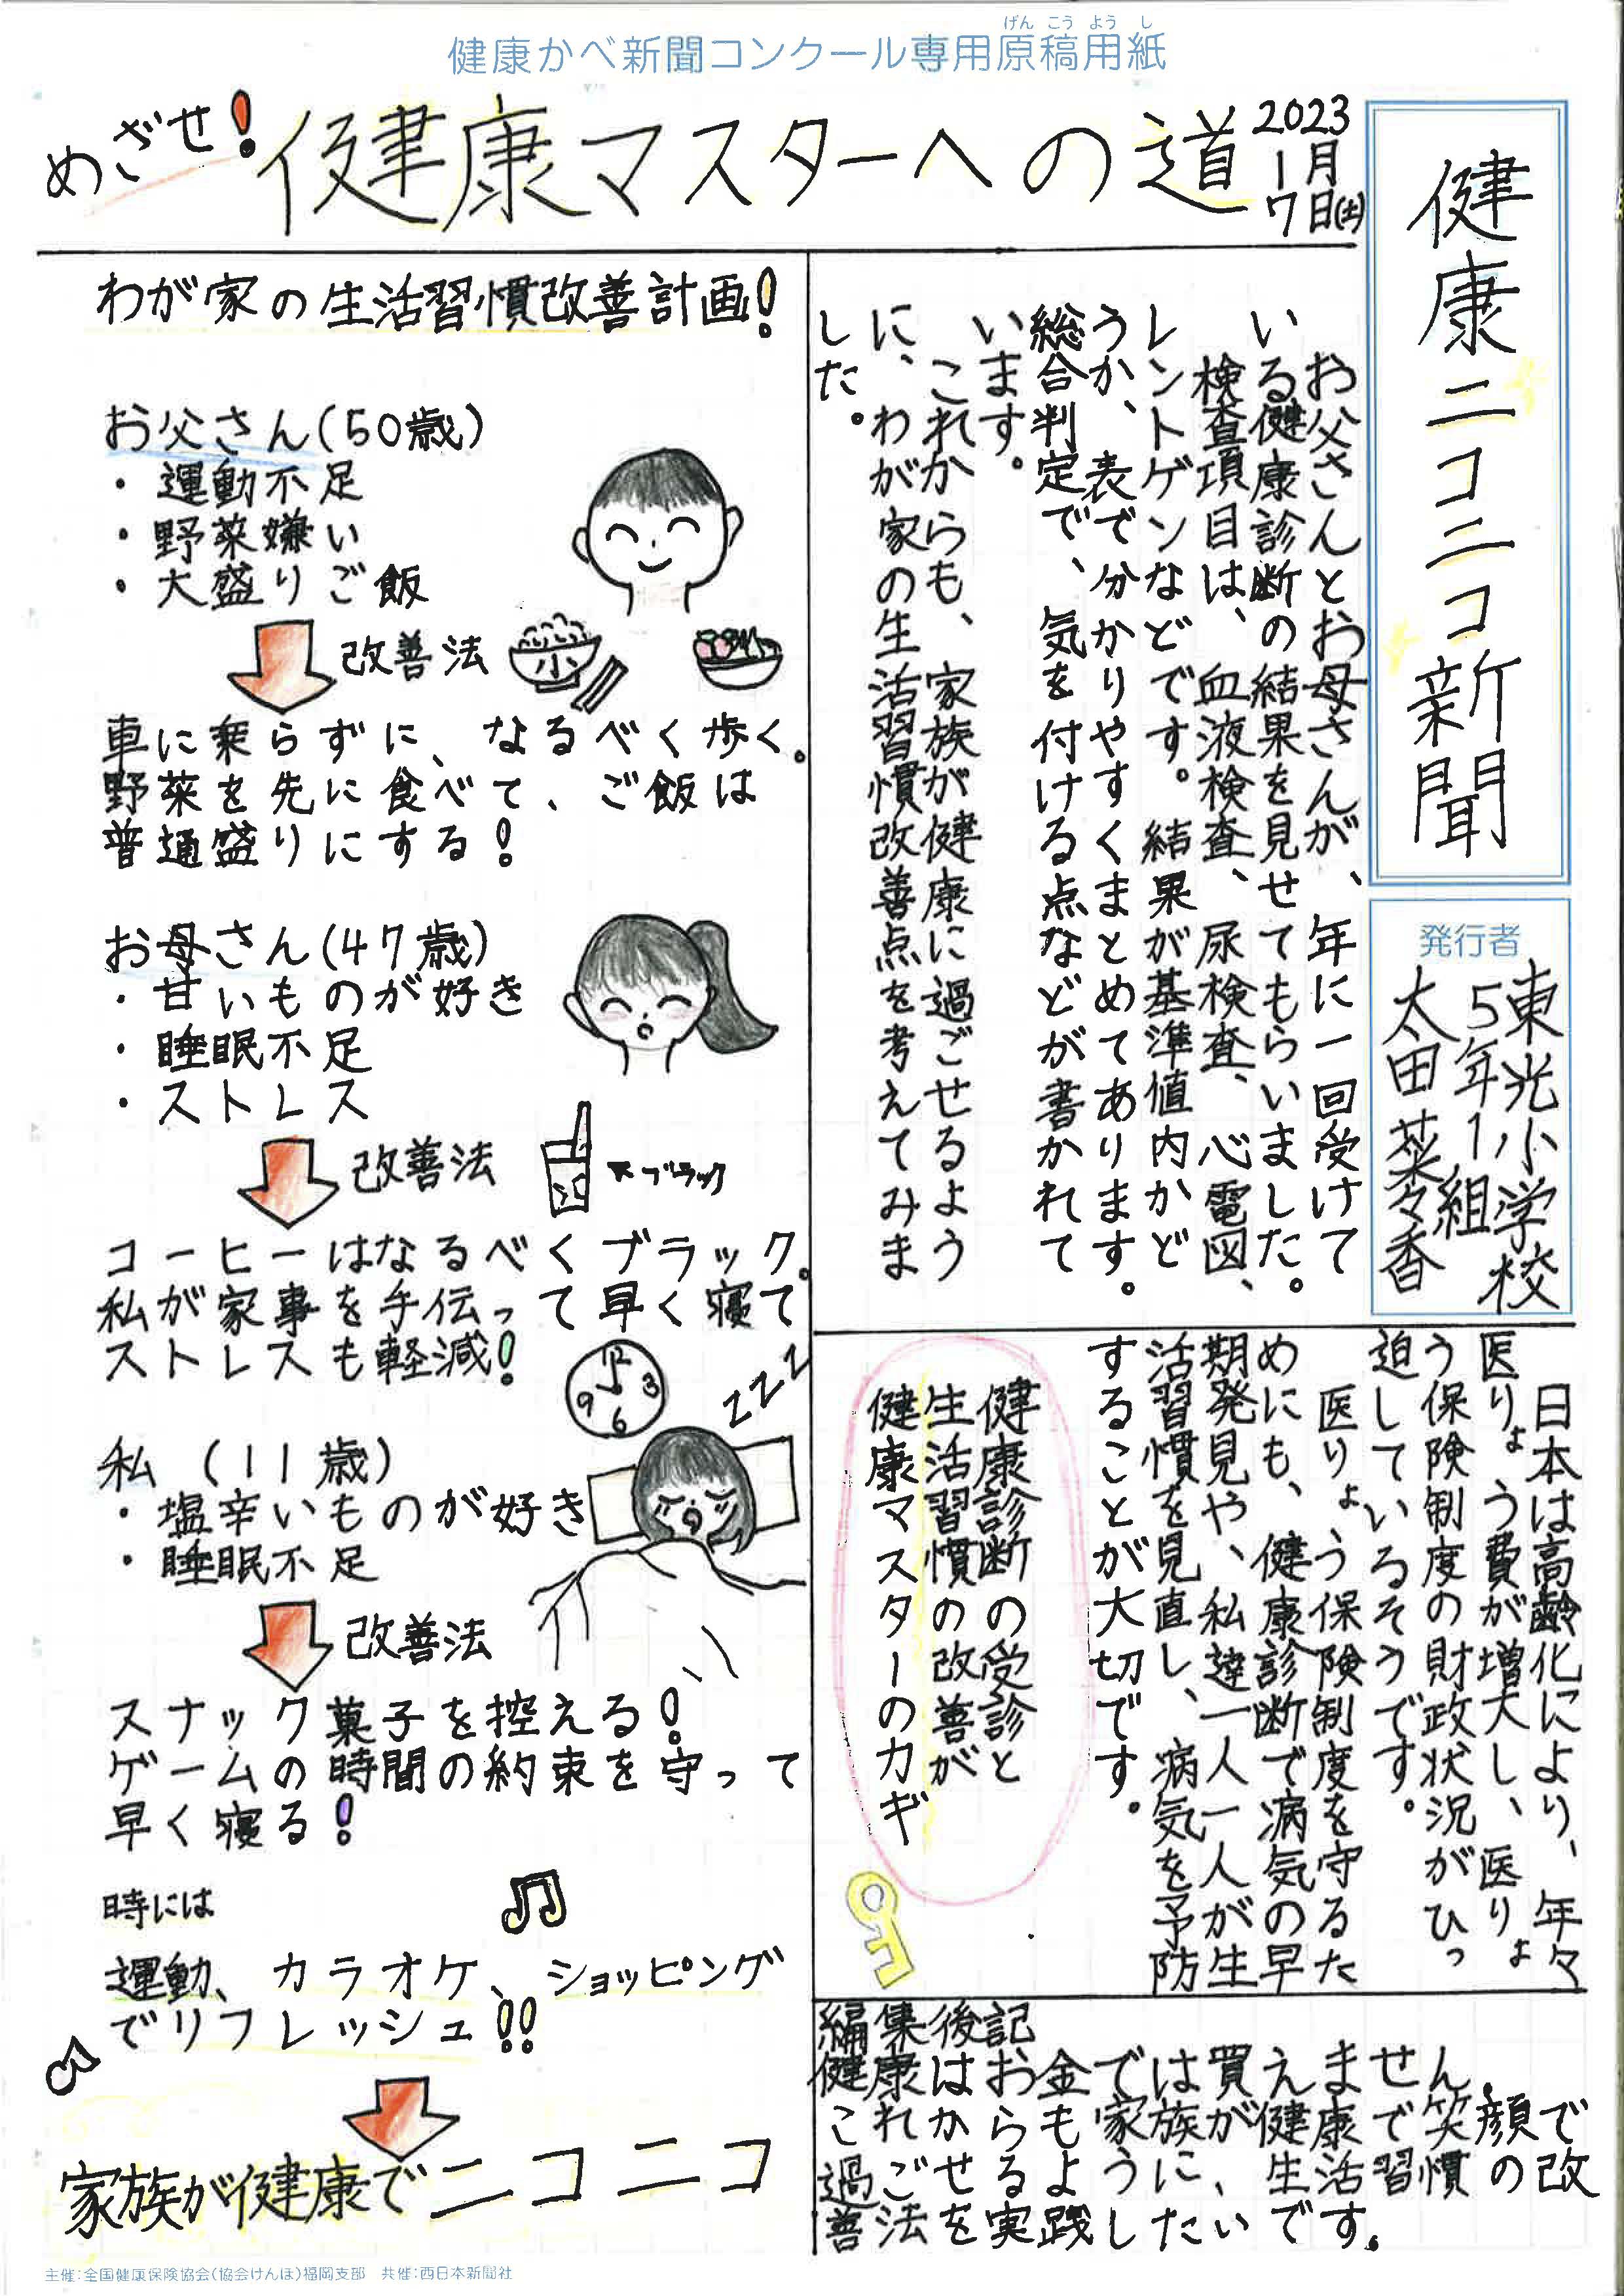 健康かべ新聞コンクール専用原稿用紙
げんこうようし
健康ニコニコ新聞
発行者
東光小学校
5年1組
太田菜々香
めざせ!健康マスターへの道
2023
1月
7日(土)
お父さんとお母さんが、年に一回受けて
いる健康診断の結果を見せてもらいました。
検査項目は、血液検査、尿検査、心電図、
レントゲンなどです。結果が基準値内かど
うか、表で分かりやすくまとめてあります。
総合判定で、気を付ける点などが書かれて
います。
これからも、家族が健康に過ごせるよう
に、わが家の生活習慣改善点を考えてみま
した。
日本は高齢化により、年々
医りょう費が増大し、医りょ
う保険制度の財政状況がひっ
迫しているそうです。
医りょう保険制度を守るた
めにも、健康診断で病気の早
期発見や、私達一人一人が生
活習慣を見直し、病気を予防
することが大切です。
健康診断の受診と
生活習慣の改善が
健康マスターのカギ
わが家の生活習慣改善計画!
お父さん(50歳)
・運動不足
・野菜嫌い
・大盛りご飯
改善法
小
車に乗らずに、なるべく歩く。
野菜を先に食べて、ご飯は
普通盛りにする!
お母さん(47歳)
・甘いものが好き
・睡眠不足
・ストレス
改善法
ブラック
コーヒーはなるべくブラック。
私が家事を手伝って早く寝て
ストレスも軽減!
12
3
6
9
zzz
私(11歳)
・塩辛いものが好き
・睡眠不足
改善法
スナック菓子を控える!
ゲームの時間の約束を守って
早く寝る!
時には
運動、カラオケ、ショッピング
でリフレッシュ!!
家族が健康でニコニコ
編集後記
健康はお金では買えません。
これからも家族が健康で笑顔で
過ごせるように、生活習慣の改
善法を実践したいです。
主催:全国健康保険協会(協会けんぽ)福岡支部 共催:西日本新聞社